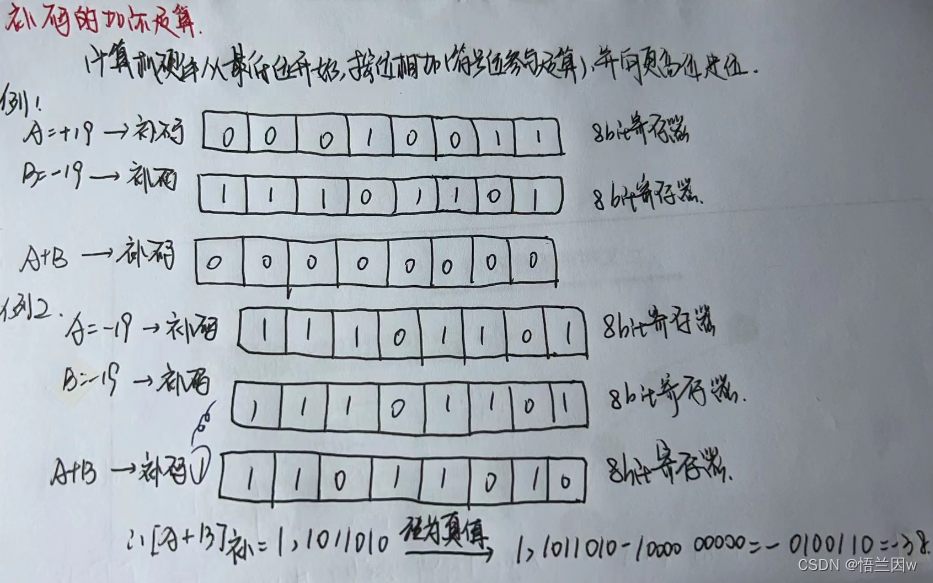 补码的加法运算.
计算机硬件从最低位开始,按位相加(符号位参与运算),并向更高位进位.
例1:
A=+19→补码 0 0 0 1 0 0 1 1 8bit寄存器
B=-19→补码 1 1 1 0 1 1 0 1 8bit寄存器.
A+B→补码 0 0 0 0 0 0 0 0
例2.
A=-19→补码 1 1 1 0 1 1 0 1 8bit寄存器
B=-19→补码 1 1 1 0 1 1 0 1 8bit寄存器.
A+B→补码 1 1 1 0 1 1 0 1 0 8bit寄存器.
∴[A+B]补=1,1011010 转为真值→ 1,1011010-10000 00000=-0100110=-38.
CSDN @悟兰因w